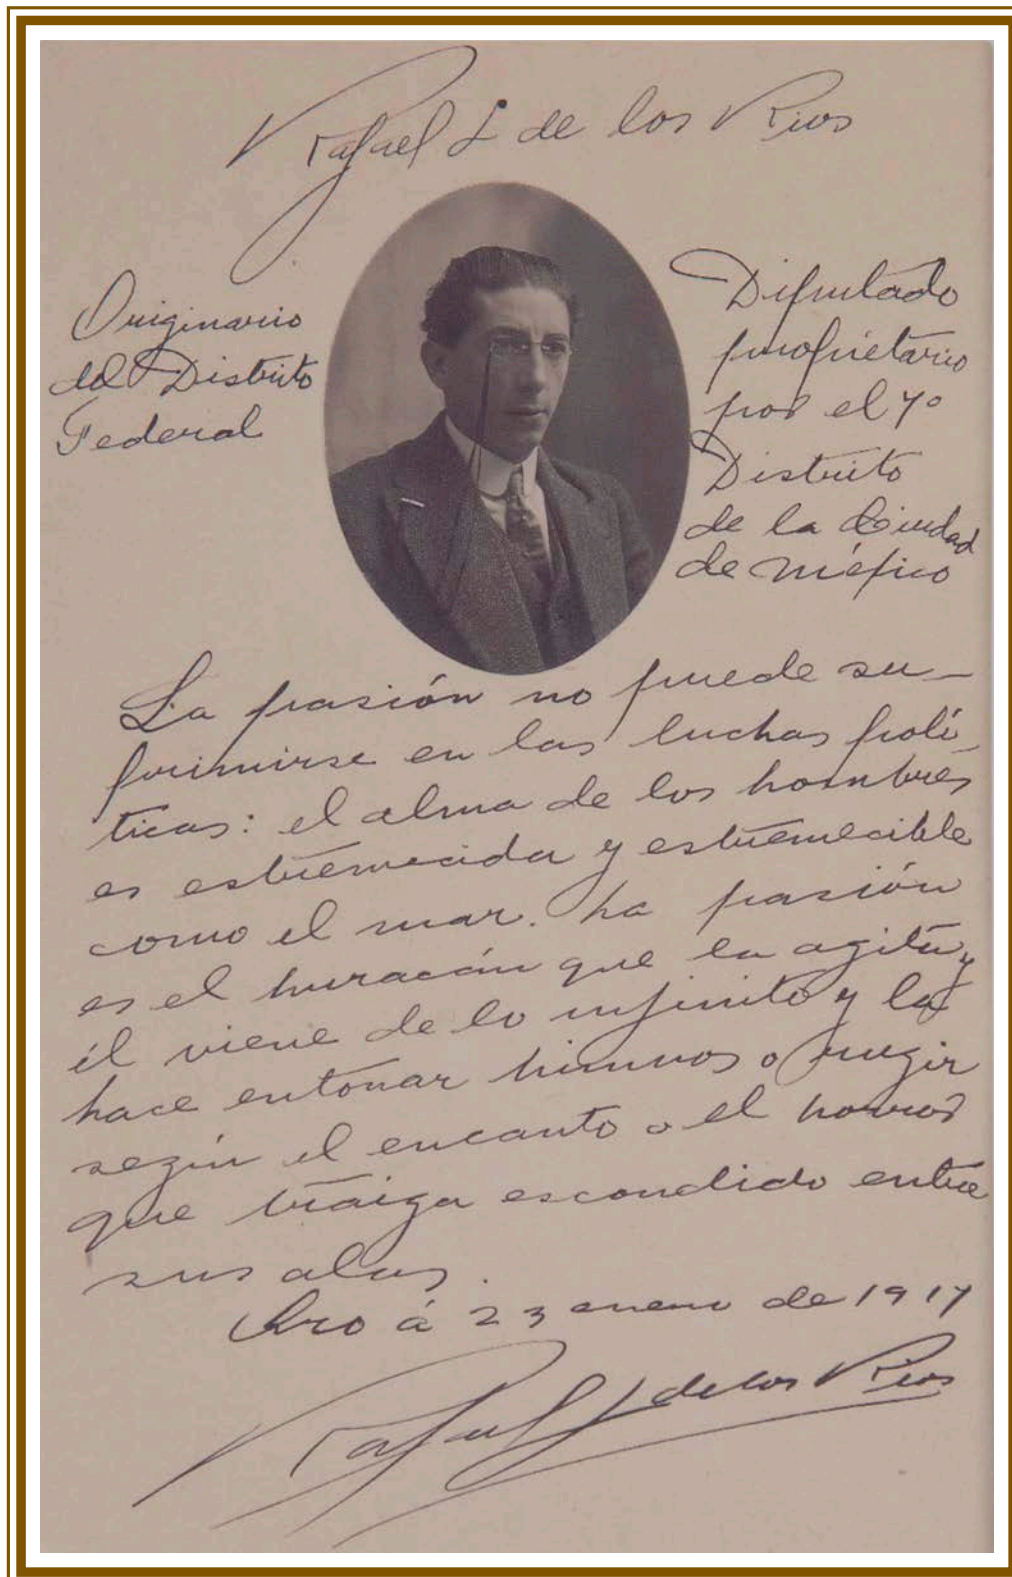 Rafael L de los Rios
Originario
del Distrito
Federal
Diputado
propietario
por el 7º
Distrito
de la Ciudad
de México
La pasión no puede su-
primirse en las luchas polí-
ticas: el alma de los hombres
es estremecida y estremecible
como el mar. La pasión
es el huracán que la agita y
él viene de lo infinito y la
hace entonar himnos o rugir
según el encanto o el horror
que traiga escondido entre
sus alas.
Qro á 23 enero de 1917
Rafael L de los Rios